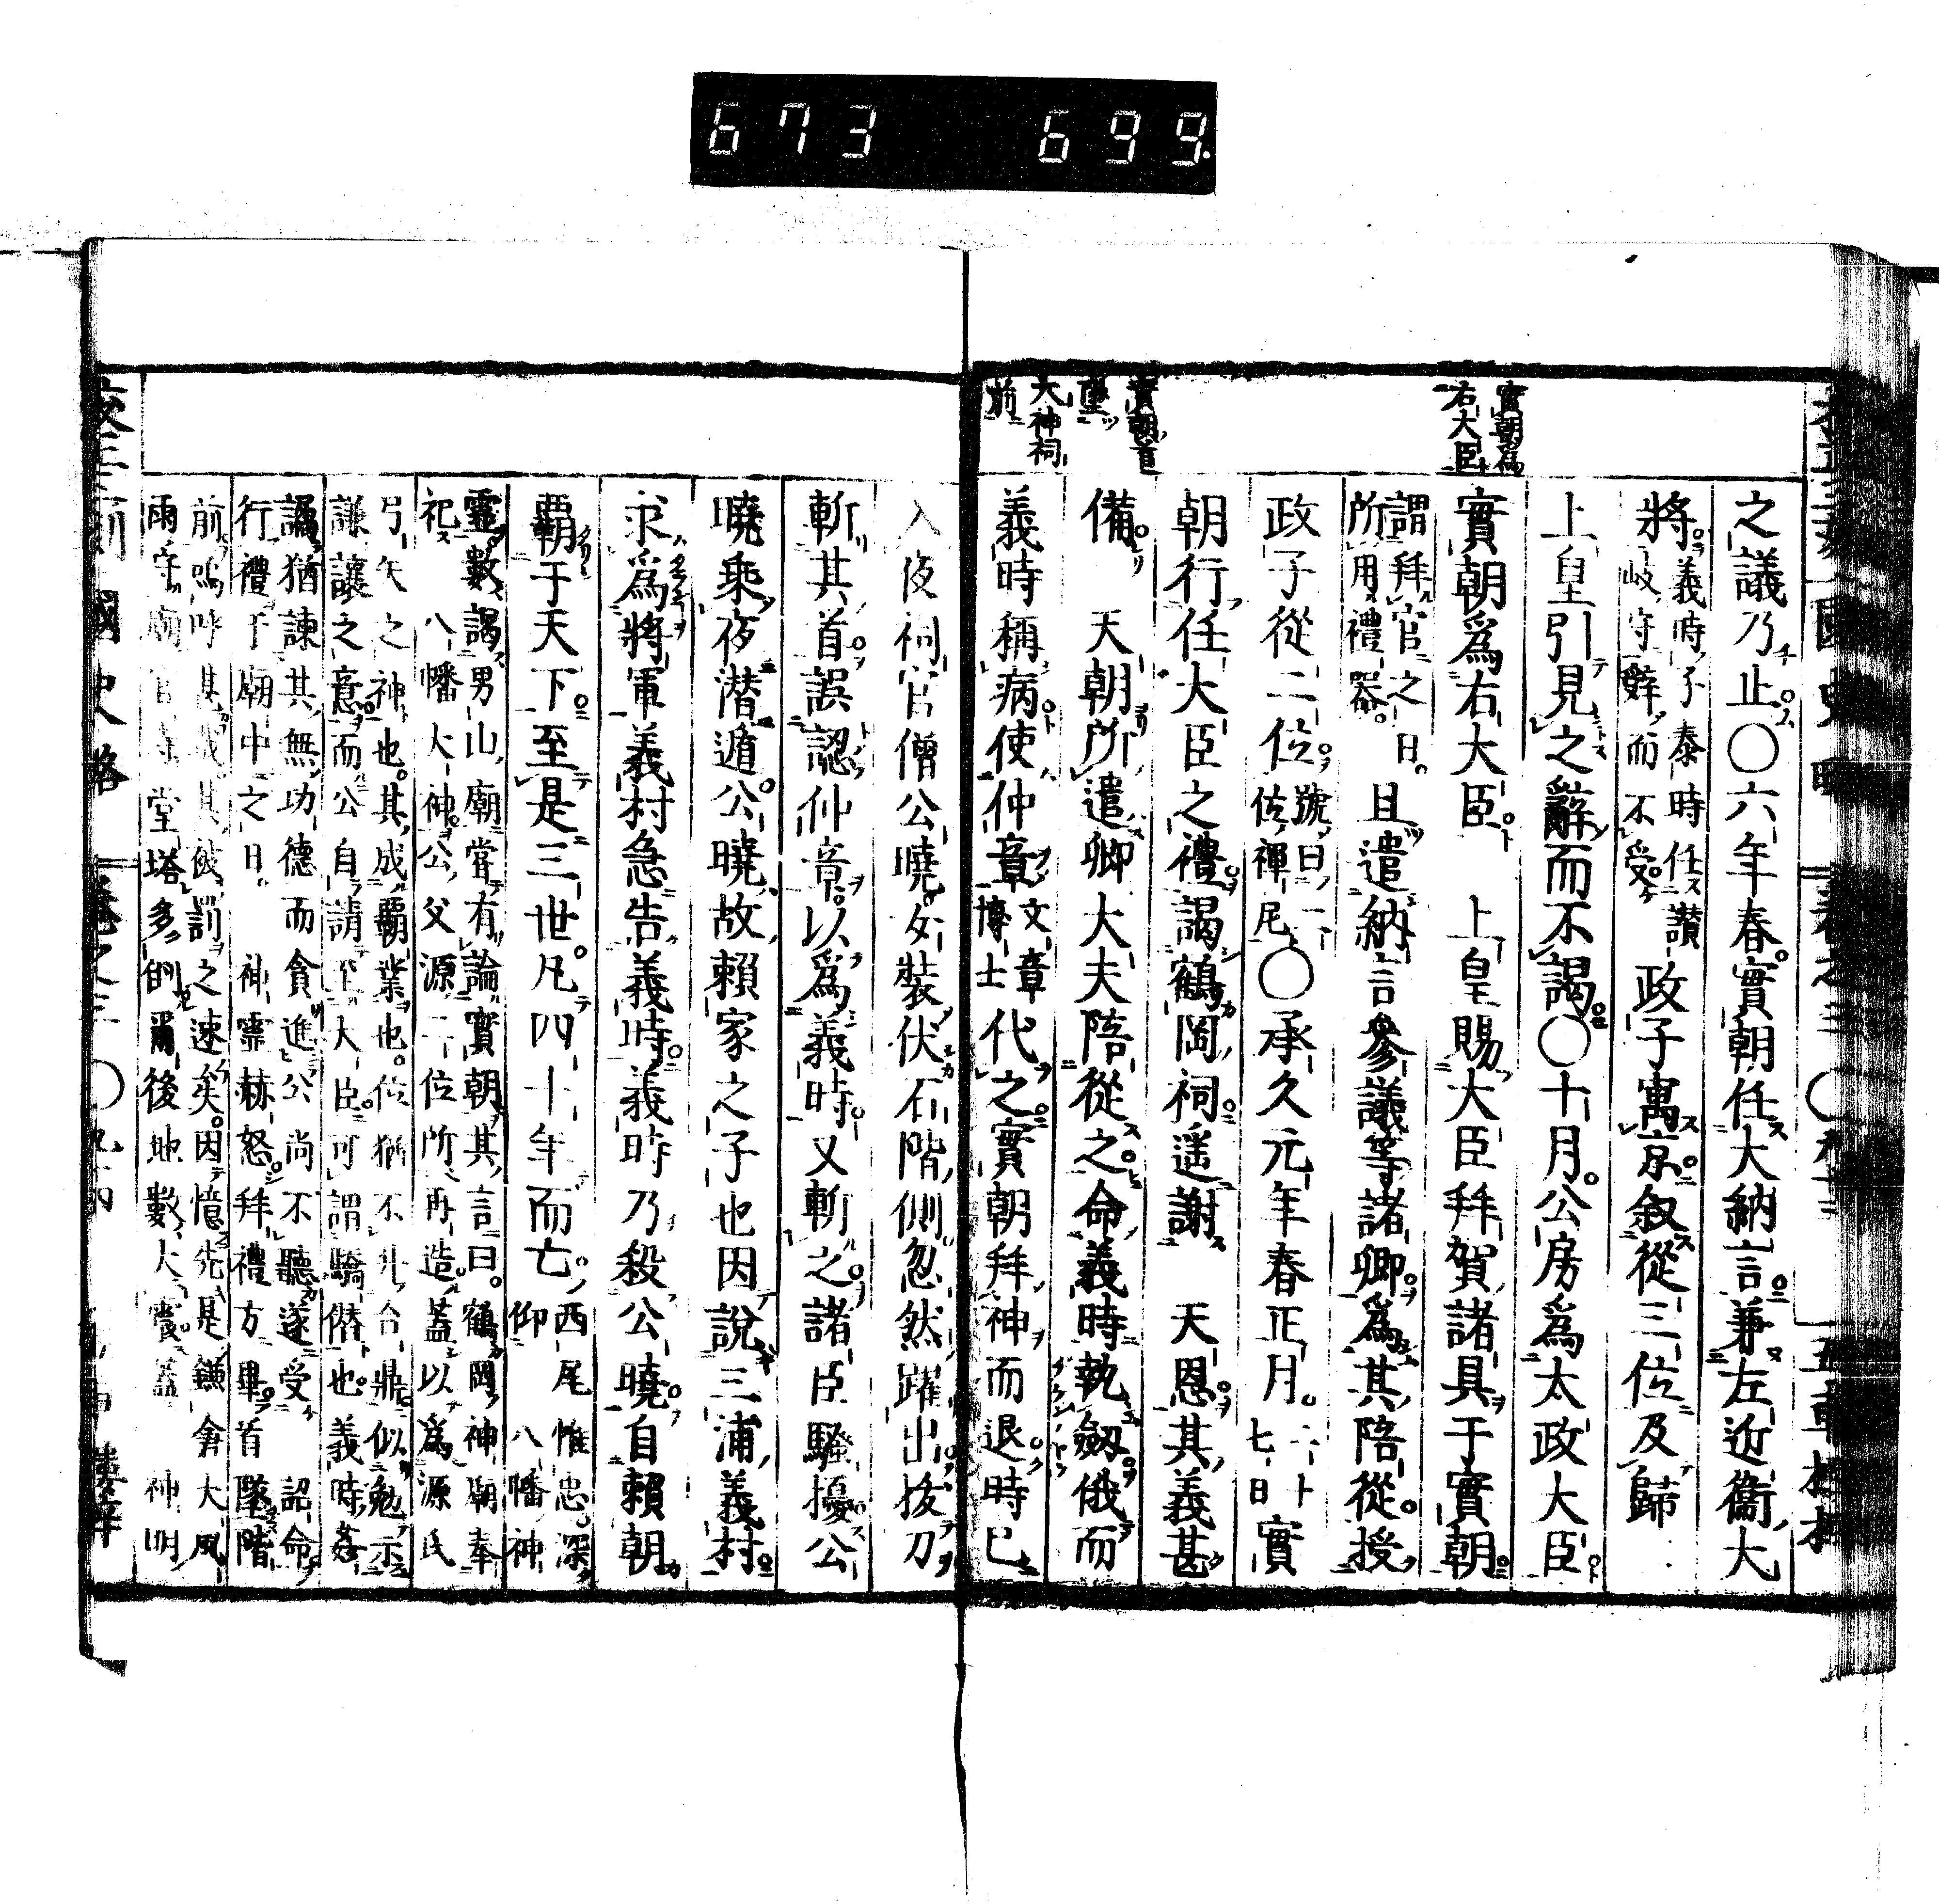 673 699.
實朝為
右大臣
實朝首
墜
大神祠
前
之議乃止〇六年春實朝任大納言兼左近衞大
將義時子泰時任讃
岐守辭而不受政子寓京叙從三位及歸
上皇引見之辭而不謁〇十月公房爲太政大臣
實朝爲右大臣 上皇賜大臣拜賀諸具于實朝
謂拜官之日
所用禮器。且遣納言參議等諸卿爲其陪從授
政子從二位號曰二
位禪尼〇承久元年春正月二十
七日實
朝行任大臣之禮謁鶴岡祠遥謝 天恩其義甚
備 天朝所遣卿大夫陪從之命義時執劔俄而
義時稱病使仲章文章
博士代之實朝拜神而退時已
入夜祠官僧公曉女裝伏石階側忽然躍出抜刀
斬其首誤認仲章以爲義時又斬之諸臣騷擾公
曉乘夜潜遁公曉故賴家之子也因說三浦義村
求爲將軍義村急告義時義時乃殺公曉自賴朝
覇于天下至是三世凡四十年而亡西尾惟忠深
仰八幡神
靈數謁男山廟嘗有論實朝其言曰鶴岡神廟奉
祀八幡大神公父源二位所再造蓋以爲源氏
弓矢之神也其成覇業也位猶不升台鼎似勉示
謙讓之意而公自請至大臣可謂驕僭也義時姦
譎猶諫其無功德而貪進公尚不聽遂受 詔命
行禮于廟中之日 神靈赫怒拜禮方畢首墜階
前嗚呼其 其 罰之速矣因憶先是鎌倉大風
雨守廟官 堂塔多倒爾後地數大震蓋 神明
國史略